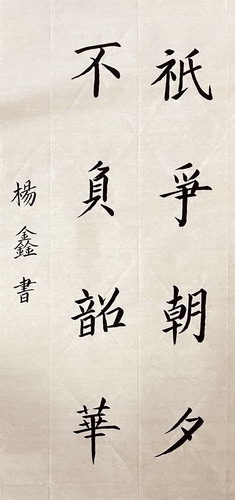 祇爭朝夕
不負韶華
楊鑫書